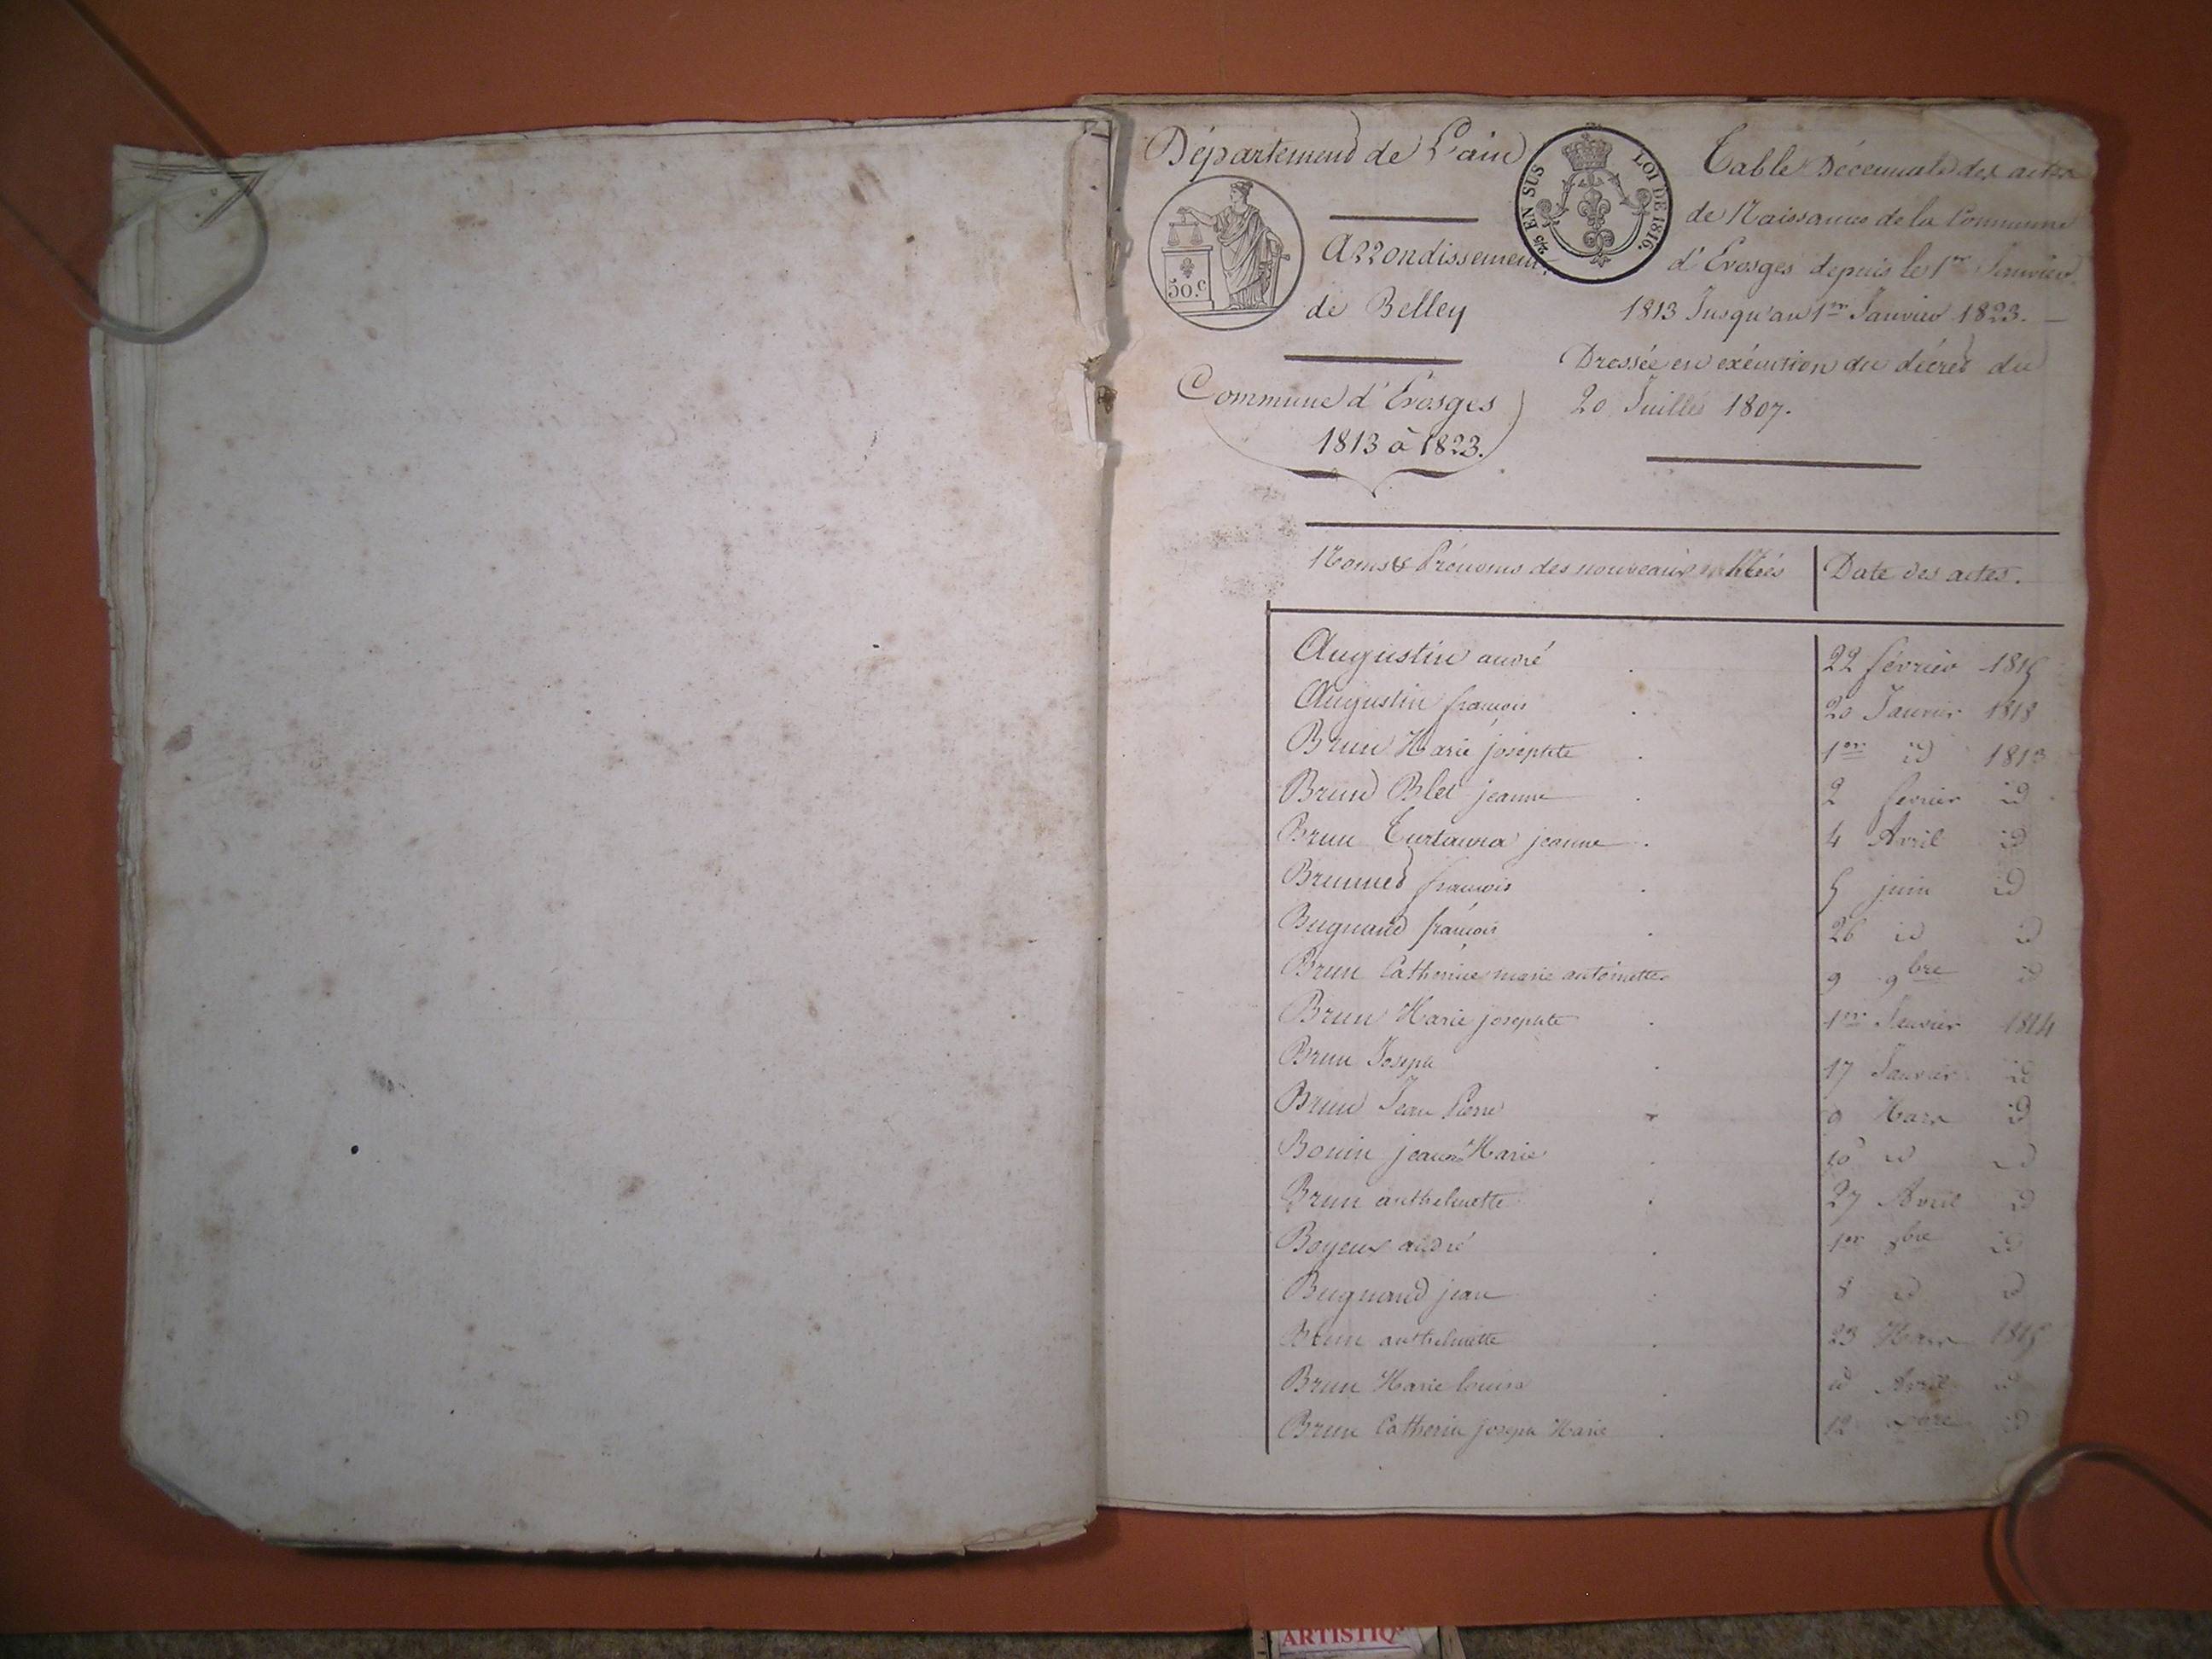 Département de l'ain
50.c
Arrondissement
de Belley
Commune d'Evosges
1813 à 1823.
2/5 EN SUS LOI DE 1816.
Table Décennale des actes
de Naissances de la Commune
d'Evosges depuis le 1er Janvier
1813 Jusqu'au 1er Janvier 1823.
Dressée en exécution du décret du
20 Juillet 1807.
Noms & Prénoms des nouveaux Nés Date des actes.
Augustin andré 22 février 1815
Augustin francois 20 Janvier 1818
Brun Marie josephte 1er id 1813
Brun Blet jeanne 2 fevrier id
Brun jeanne 4 Avril id
Brunnet francois 5 juin id
Bugnand françois 26 id id
Brun Catherine marie antoinette 9 9bre id
Brun Marie josephte 1er Janvier 1814
Brun Joseph 17 Janvier id
Brun Jean Pierre 9 Mars id
Bonin jeanne Marie 10 id id
Brun anthelmette 27 Avril id
Boyeux andré 1er 8bre id
Bugnand jean 8 id id
Brun anthelmette 23 Mars 1815
Brun Marie louise id Avril id
Brun Catherin joseph Marie 12 id
ARTISTIQ